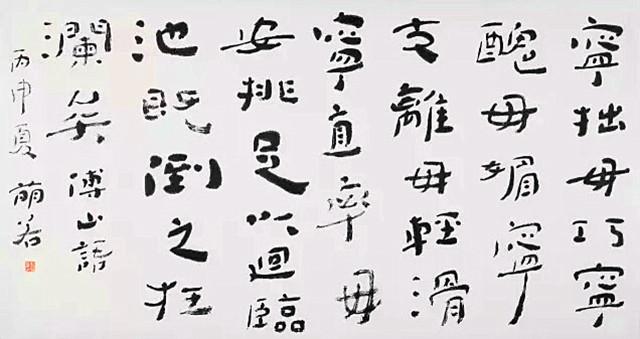 寧拙毋巧寧
醜毋媚寧
支離毋輕滑
寧直率毋
安排足以迴臨
池既倒之狂
瀾矣傅山語
丙申夏萌若